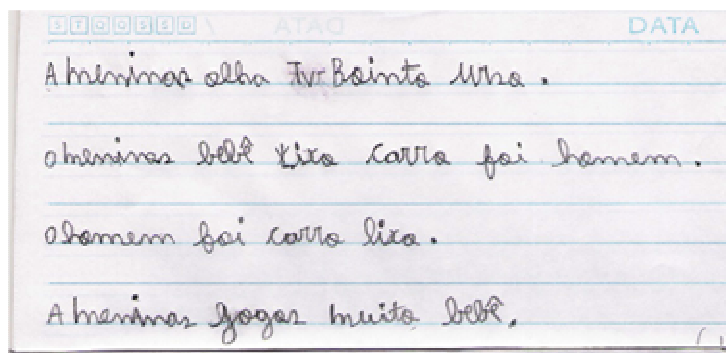 S T Q Q S S D DATA
A meninas olha Tv Bainto urso.
O meninas bebê lixo carro foi homem.
O homem foi carro lixo.
A meninas gogar muito bebê.